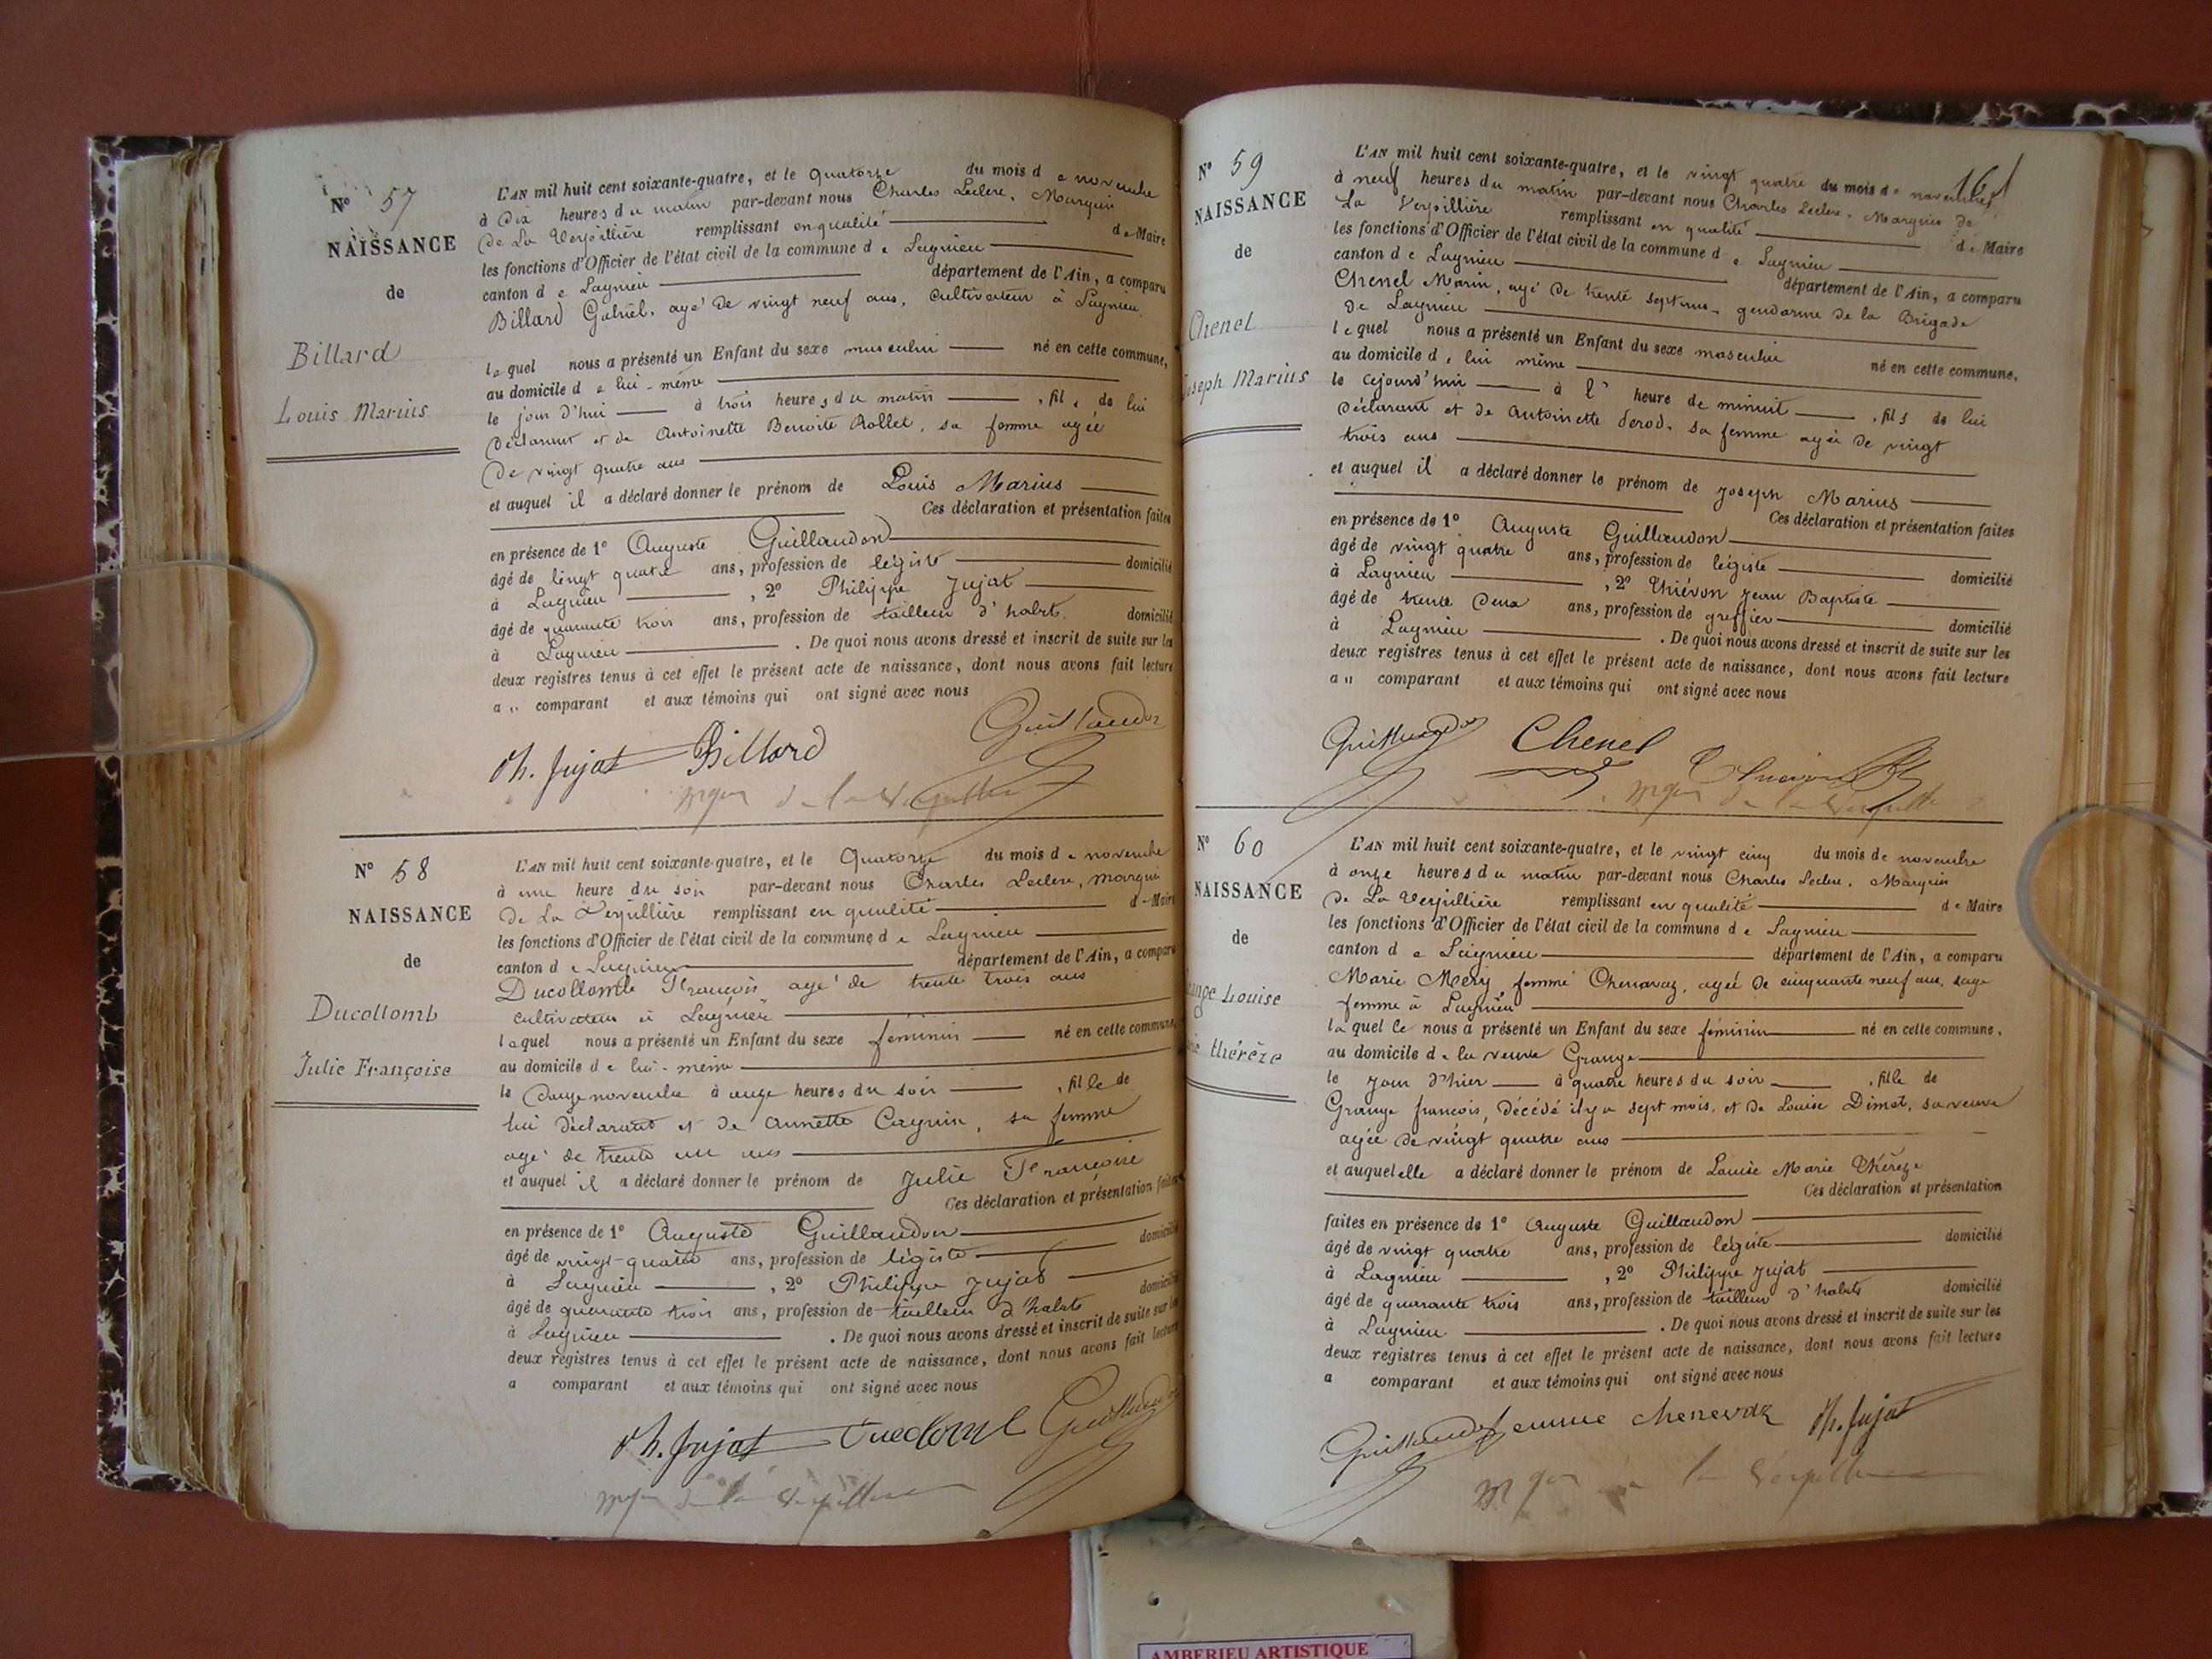 N° 57
NAISSANCE
de
Billard
Louis Marius
L'AN mil huit cent soixante-quatre, et le quatorze du mois de novembre
à dix heures du matin par-devant nous Charles Leclerc, Marquis
de La Verpillière remplissant en qualité de Maire
les fonctions d'Officier de l'état civil de la commune de Lagnieu
canton de Lagnieu département de l'Ain, a comparu
Billard Gabriel, agé de vingt neuf ans, cultivateur à Lagnieu
lequel nous a présenté un Enfant du sexe masculin né en cette commune,
au domicile de lui-même
le jour d'hui à trois heures du matin, fils de lui
déclarant et de Antoinette Benoite Rollet, sa femme agée
de vingt quatre ans
et auquel il a déclaré donner le prénom de Louis Marius
Ces déclaration et présentation faites
en présence de 1° Auguste Guillaudon
âgé de vingt quatre ans, profession de légiste domicilié
à Lagnieu, 2° Philippe Jujat
âgé de quarante trois ans, profession de tailleur d'habits domicilié
à Lagnieu. De quoi nous avons dressé et inscrit de suite sur les
deux registres tenus à cet effet le présent acte de naissance, dont nous avons fait lecture
au comparant et aux témoins qui ont signé avec nous
Guillaudon
Ph. Jujat Billard
Mquis de la Verpillière
N° 58
NAISSANCE
de
Ducollomb
Julie Françoise
L'AN mil huit cent soixante-quatre, et le Quatorze du mois de novembre
à une heure du soir par-devant nous Charles Leclerc, marquis
de La Verpillière remplissant en qualité de Maire
les fonctions d'Officier de l'état civil de la commune de Lagnieu
canton de Lagnieu département de l'Ain, a comparu
Ducollomb François agé de trente trois ans
cultivateur à Lagnieu
lequel nous a présenté un Enfant du sexe féminin né en cette commune,
au domicile de lui-même
le douze novembre à onze heures du soir, fille de
lui déclarant et de Annette Cagnin, sa femme
agé de trente un ans
et auquel il a déclaré donner le prénom de Julie Françoise
Ces déclaration et présentation faites
en présence de 1° Auguste Guillaudon
âgé de vingt-quatre ans, profession de légiste domicilié
à Lagnieu, 2° Philippe Jujat
âgé de quarante trois ans, profession de tailleur d'habits domicilié
à Lagnieu. De quoi nous avons dressé et inscrit de suite sur les
deux registres tenus à cet effet le présent acte de naissance, dont nous avons fait lecture
a comparant et aux témoins qui ont signé avec nous
Ph. Jujat Guillaudon
Mquis de la Verpillière
N° 59
NAISSANCE
de
Chenel
Joseph Marius
L'AN mil huit cent soixante-quatre, et le vingt quatre du mois de novembre
à neuf heures du matin par-devant nous Charles Leclerc, Marquis de
La Verpillière remplissant en qualité de Maire
les fonctions d'Officier de l'état civil de la commune de Lagnieu
canton de Lagnieu département de l'Ain, a comparu
Chenel Marin, agé de trente sept ans, gendarme de la Brigade
de Lagnieu
lequel nous a présenté un Enfant du sexe masculin né en cette commune,
au domicile de lui même
le cejourd'hui à l' heure de minuit, fils de lui
déclarant et de Antoinette Serod, sa femme agée de vingt
trois ans
et auquel il a déclaré donner le prénom de Joseph Marius
Ces déclaration et présentation faites
en présence de 1° Auguste Guillaudon
âgé de vingt quatre ans, profession de légiste domicilié
à Lagnieu, 2° Thiévon Jean Baptiste
âgé de trente deux ans, profession de greffier domicilié
à Lagnieu. De quoi nous avons dressé et inscrit de suite sur les
deux registres tenus à cet effet le présent acte de naissance, dont nous avons fait lecture
au comparant et aux témoins qui ont signé avec nous
Guillaudon Chenel Thiévon
Mquis de la Verpillière
N° 60
NAISSANCE
de
ange Louise
ie Thérèze
L'AN mil huit cent soixante-quatre, et le vingt cinq du mois de novembre
à onze heures du matin par-devant nous Charles Leclerc, Marquis
de La Verpillière remplissant en qualité de Maire
les fonctions d'Officier de l'état civil de la commune de Lagnieu
canton de Lagnieu département de l'Ain, a comparu
Marie Mery, femme Chenavaz, agée de cinquante neuf ans, sage
femme à Lagnieu
laquelle nous a présenté un Enfant du sexe féminin né en cette commune,
au domicile de la veuve Grange
le jour d'hier à quatre heures du soir, fille de
Grange françois, décédé il y a sept mois, et de Louise Dimet, sa veuve
agée de vingt quatre ans
et auquel elle a déclaré donner le prénom de Louise Marie Thérèze
Ces déclaration et présentation
faites en présence de 1° Auguste Guillaudon
âgé de vingt quatre ans, profession de légiste domicilié
à Lagnieu, 2° Philippe Jujat
âgé de quarante trois ans, profession de tailleur d'habits domicilié
à Lagnieu. De quoi nous avons dressé et inscrit de suite sur les
deux registres tenus à cet effet le présent acte de naissance, dont nous avons fait lecture
a comparant et aux témoins qui ont signé avec nous
Guillaudon femme chenevaz Ph. Jujat
Mquis de la Verpillière
AMBERIEU ARTISTIQUE